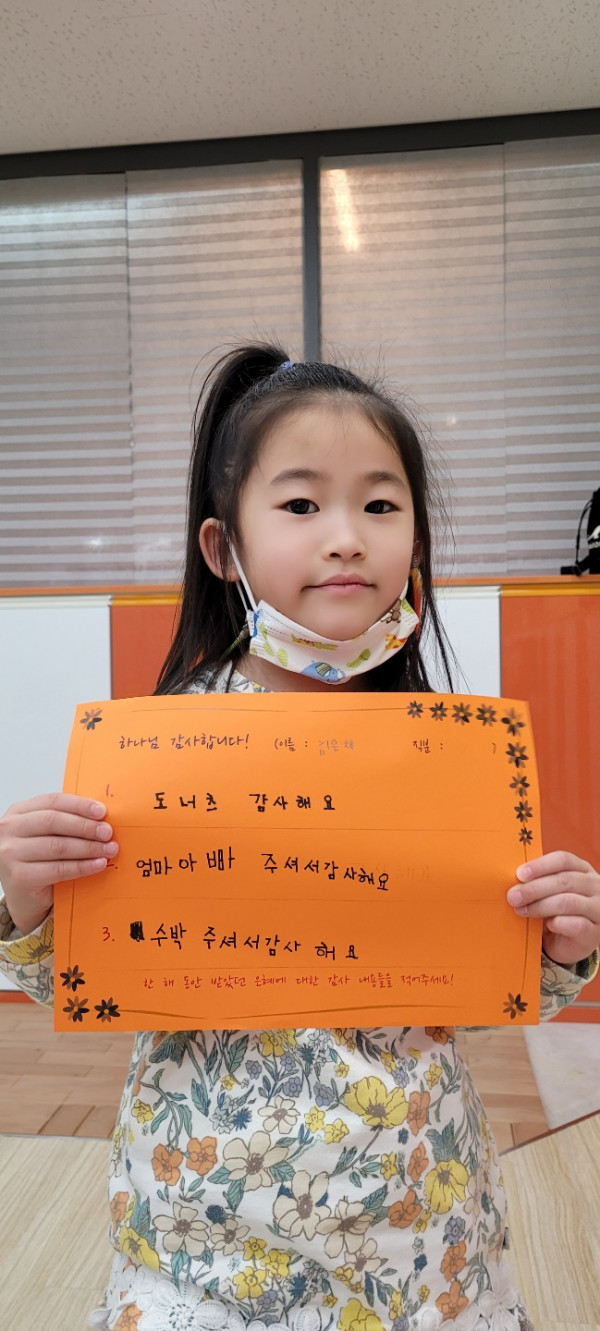 하나님 감사합니다! (이름 : 김은채 직분 : )
1. 도너츠 감사해요
2. 엄마아빠 주셔서감사해요
3. 수박 주셔서감사 해요
한 해 동안 받았던 은혜에 대한 감사 내용들을 적어주세요!